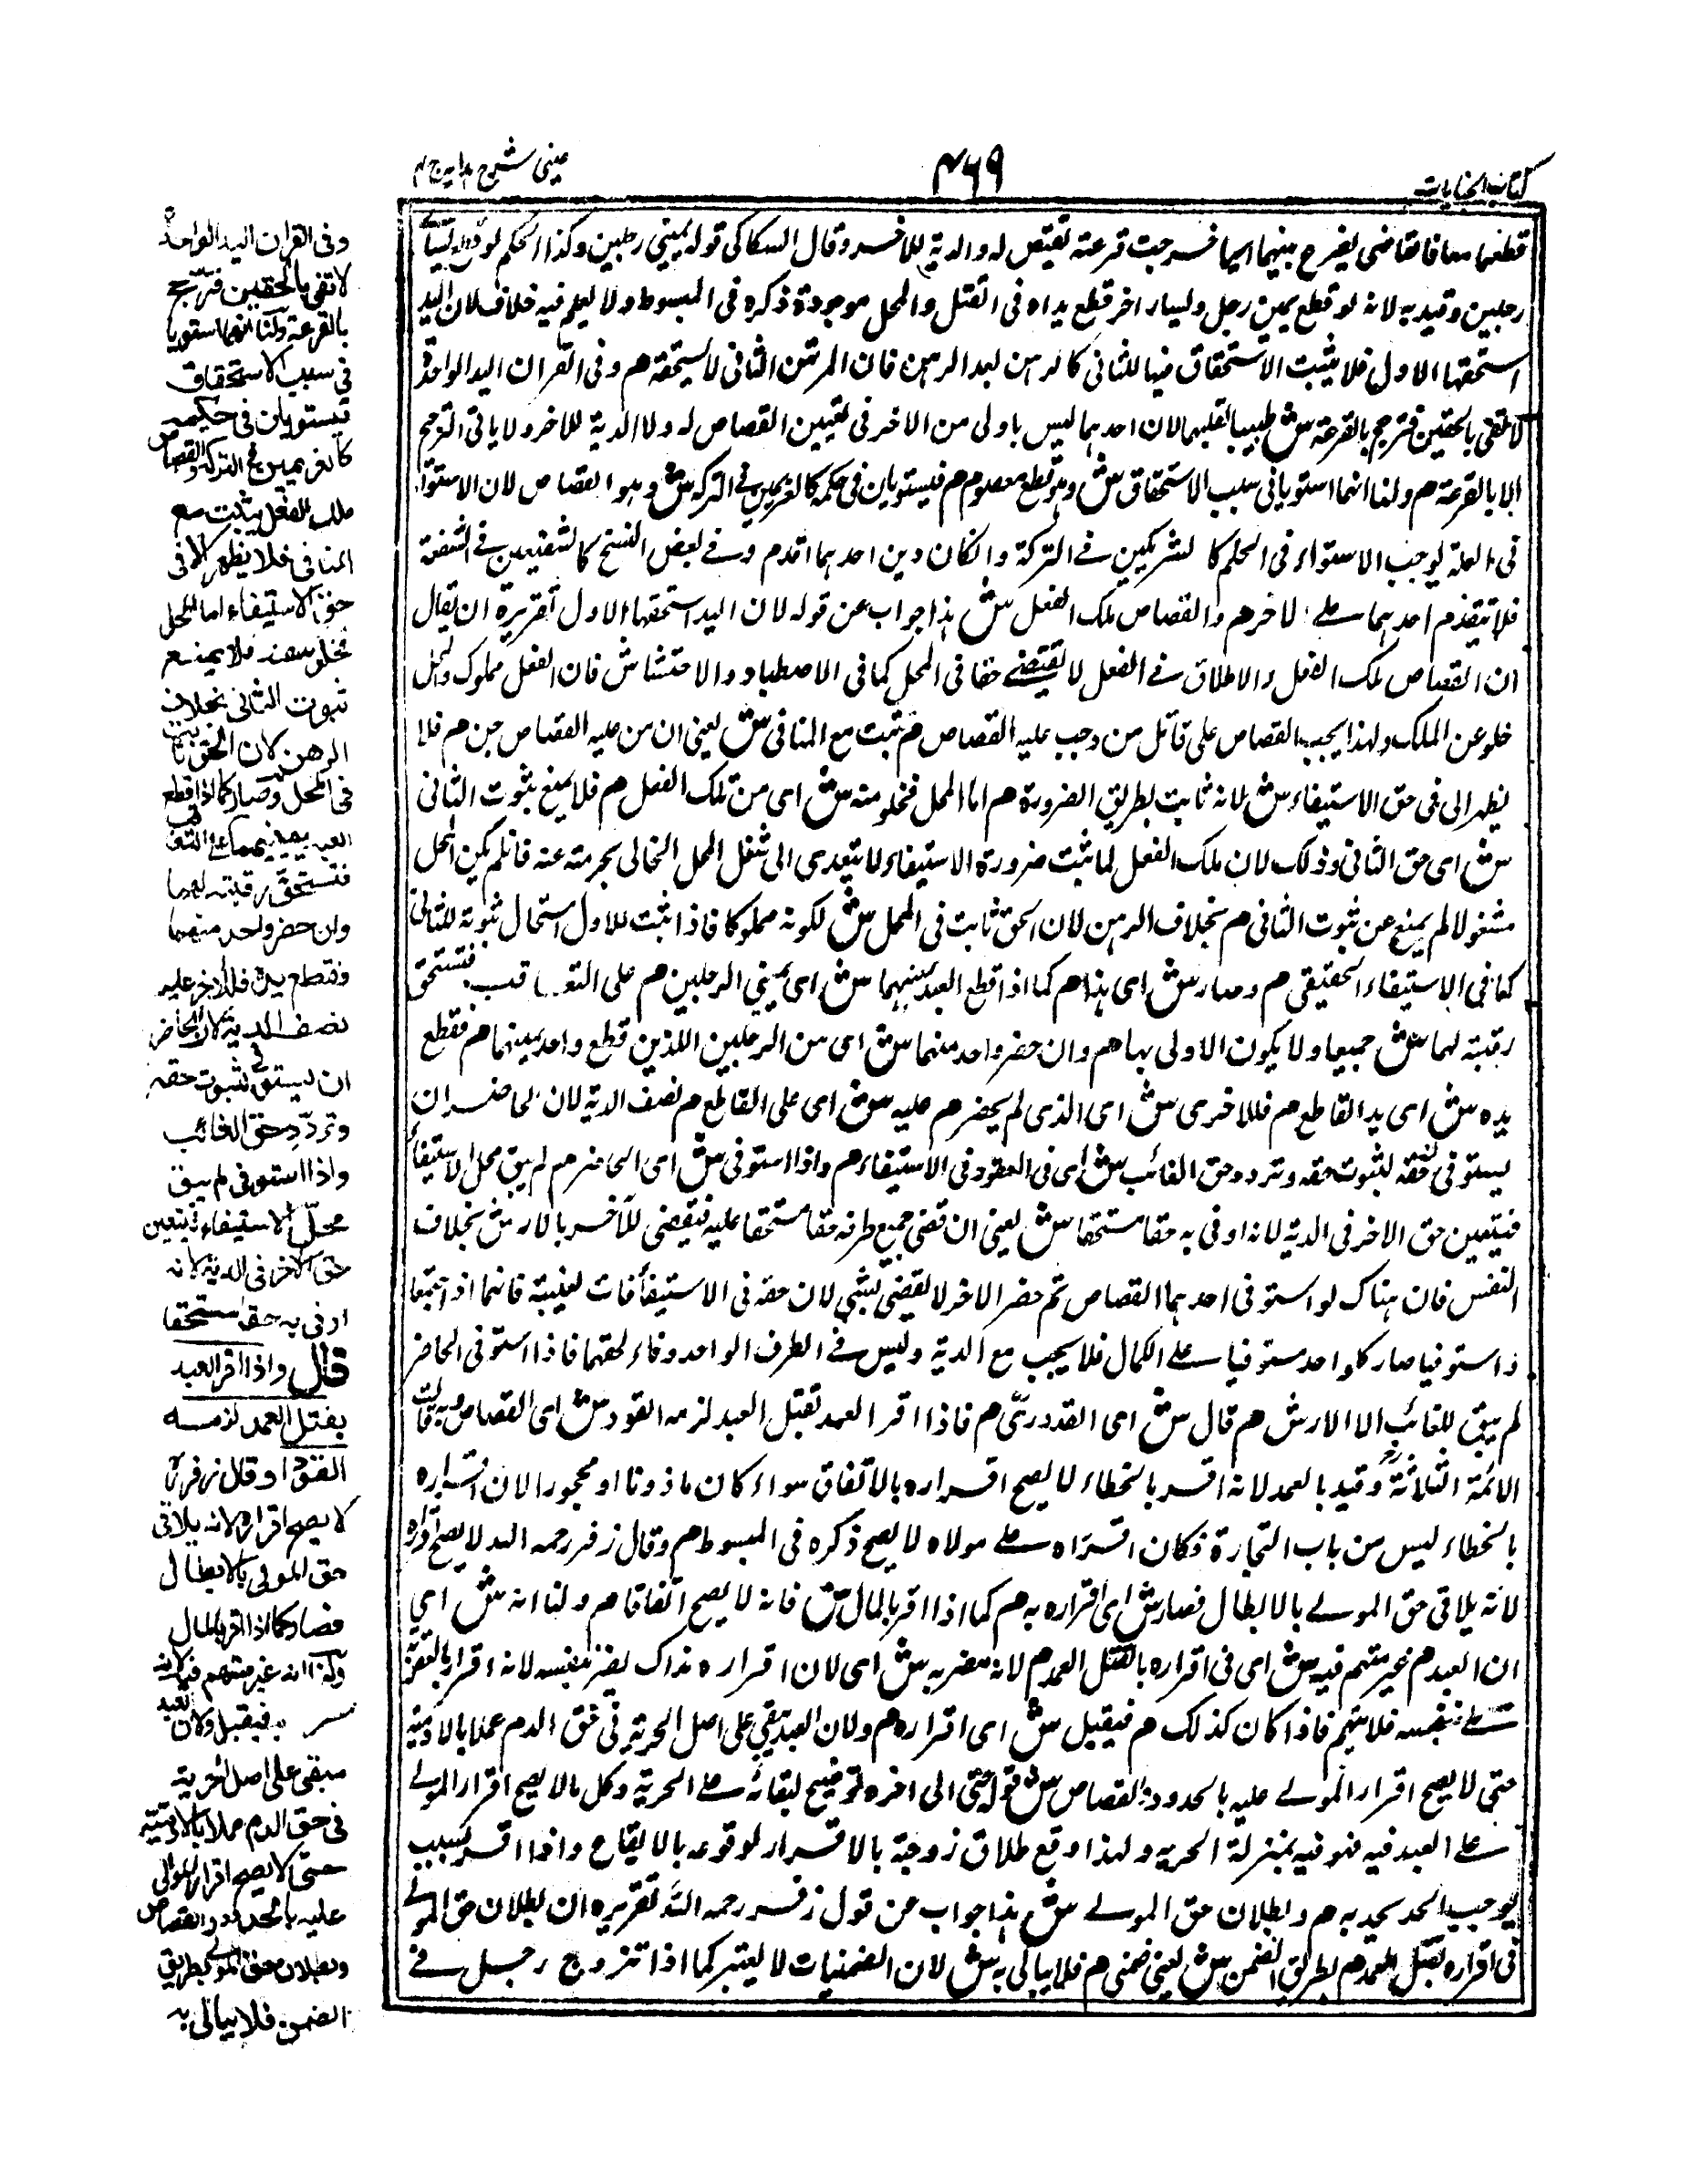 كتاب الجنايات
٤٦٩
عينى شرح هدايه ج ٤
قطعهما معا فالقاضى يقرع بينهما ايهما خرجت قرعته يقتص له والدية للاخر وقال السكاكى قوله يمينى رجلين وكذا الحكم لو قطع يسارى
رجلين وقيد به لانه لو قطع يمين رجل ويسار اخر قطع يداه فى القتل والمحل موجودة ذكره فى المبسوط ولا يعلم فيه خلاف لان اليد
استحقها الاول فلا يثبت الاستحقاق فيها للثانى كالرهن بعد الرهن فان المرتهن الثانى لا يستحقه هم وفى القران اليد الواحدة
لا تفى بالحقين فترجح بالقرعة ش تطييبا لقلبهما لان احدهما ليس باولى من الاخر فى تعيين القصاص له ولا الدية للاخر ولا ياتى الترجيح
الا بالقرعة هم ولنا انهما استويا فى سبب الاستحقاق ش وهو قطع معصوم هم فيستويان فى حكمه كالغريمين فى التركة ش وهو القصاص لان الاستواء
فى العلة يوجب الاستواء فى الحكم كالشريكين فى التركة وان كان دين احدهما اقدم وفى بعض النسخ كالشفيعين فى الشفعة
فلا يتقدم احدهما على الاخر هم والقصاص ملك الفعل ش هذا جواب عن قوله لان اليد استحقها الاول تقريره ان يقال
ان القصاص ملك الفعل والاطلاق فى الفعل لا يقتضى حقا فى المحل كما فى الاصطياد والاحتشاش فان الفعل مملوك والمحل
خلو عن الملك ولهذا يجب القصاص على قاتل من وجب عليه القصاص هم ثبت مع المنافى ش يعنى ان من عليه القصاص حر هم فلا
يظهر الى فى حق الاستيفاء ش لانه ثابت بطريق الضرورة هم اما المحل فخلو منه ش اى من ملك الفعل هم فلا يمنع ثبوت الثانى
ش اى حق الثانى وذلك لان ملك الفعل لما ثبت ضرورة الاستيفاء لا يتعدى الى شغل المحل الخالى بحرمته عنه فاذا لم يكن المحل
مشغولا لم يمنع عن ثبوت الثانى هم بخلاف الرهن لان الحق ثابت فى المحل ش لكونه مملوكا فاذا ثبت للاول استحال ثبوته للثانى
كما فى الاستيفاء الحقيقى هم وصار ش اى هذا هم كما اذا قطع العبد يمينهما ش اى يمينى الرجلين هم على التعاقب فتستحق
رقبته لهما ش جميعا ولا يكون الاولى بها هم وان حضر واحد منهما ش اى من الرجلين اللذين قطع واحد يمينهما هم فقطع
يده ش اى يد القاطع هم فللاخرى ش اى الذى لم يحضر هم عليه ش اى على القاطع هم نصف الدية لان للحاضر ان
يستوفى حقه لثبوت حقه وتردد حق الغائب ش اى فى العفو وفى الاستيفاء هم واذا استوفى ش اى الحاضر هم لم يبق محل الاستيفاء
فيتعين حق الاخر فى الدية لانه اوفى به حقا مستحقا ش يعنى ان قضى جميع طرفه حقا مستحقا عليه فيقضى للاخر بالارش بخلاف
النفس فان هناك لو استوفى احدهما القصاص ثم حضر الاخر لا يقضى بشئ لان حقه فى الاستيفاء فات لغيبته فانهما اذا اجتمعا
واستوفيا صار كل واحد مستوفيا على الكمال فلا يجب مع الدية وليس فى الطرف الواحد وفاء لحقهما فاذا استوفى الحاضر
لم يبق للغائب الا الارش هم قال ش اى القدورى هم فاذا اقر العبد بقتل العمد لزمه القود ش اى القصاص وبه قالت
الائمة الثلاثة وقيد بالعمد لانه اقر بالخطاء لا يصح اقراره بالاتفاق سواء كان ماذونا او محجورا لان اقراره
بالخطاء ليس من باب التجارة فكان اقراره على مولاه لا يصح ذكره فى المبسوط هم وقال زفر رحمه الله لا يصح اقراره
لانه يلاقى حق المولى بالابطال فصار ش اى اقراره به هم كما اذا اقر بالمال ش فانه لا يصح اتفاقا هم ولنا انه ش اى
ان العبد هم غير متهم فيه ش اى فى اقراره بالقتل العمد هم لانه مضر به ش اى لان اقراره بذاك يضر بنفسه لانه اقرار بالعقوبة
على نفسه فلا يتهم فاذا كان كذلك هم فيقبل ش اى اقراره هم ولان العبد مبقى على اصل الحرية فى حق الدم عملا بالادمية
حتى لا يصح اقرار المولى عليه بالحدود والقصاص ش قوله حتى الى اخره توضيح لبقائه على الحرية وكل ما لا يصح اقرار المولى
على العبد فيه فهو فيه بمنزلة الحر به ولهذا وقع طلاق زوجته بالاقرار لوقوعه بالايقاع واذا اقر بسبب
يوجب الحد يحد به هم وبطلان حق المولى ش هذا جواب عن قول زفر رحمه الله تقريره ان بطلان حق المولى
فى اقراره بقتل العمد هم بطريق الضمن ش يعنى ضمنى هم فلا يبالى به ش لان الضمنيات لا يعتبر كما اذا تزوج رجل فى
وفى القران اليد الواحدة
لا تفى بالحقين فترجح
بالقرعة ولنا انهما استويا
فى سبب الاستحقاق
فيستويان فى حكمه
كالغريمين فى التركة والقصاص
ملك الفعل يثبت مع
المنافى فلا يظهر الا فى
حق الاستيفاء اما المحل
فخلو عنه فلا يمنع
ثبوت الثانى بخلاف
الرهن لان الحق ثابت
فى المحل وصار كما اذا قطع
العبد يمينيهما على التعاقب
فتستحق رقبته لهما
وان حضر واحد منهما
فقطع يده فللاخر عليه
نصف الدية لان للحاضر
ان يستوفى لثبوت حقه
وتردد حق الغائب
واذا استوفى لم يبق
محل الاستيفاء فيتعين
حق الاخر فى الدية لانه
اوفى به حقا مستحقا
قال واذا اقر العبد
بقتل العمد لزمه
القود وقال زفر
لا يصح اقراره لانه يلاقى
حق المولى بالابطال
فصار كما اذا اقر بالمال
ولنا انه غير متهم فيه لانه
مضر به فيقبل ولان العبد
مبقى على اصل الحرية
فى حق الدم عملا بالادمية
حتى لا يصح اقرار المولى
عليه بالحدود والقصاص
وبطلان حق المولى بطريق
الضمن فلا يبالى به